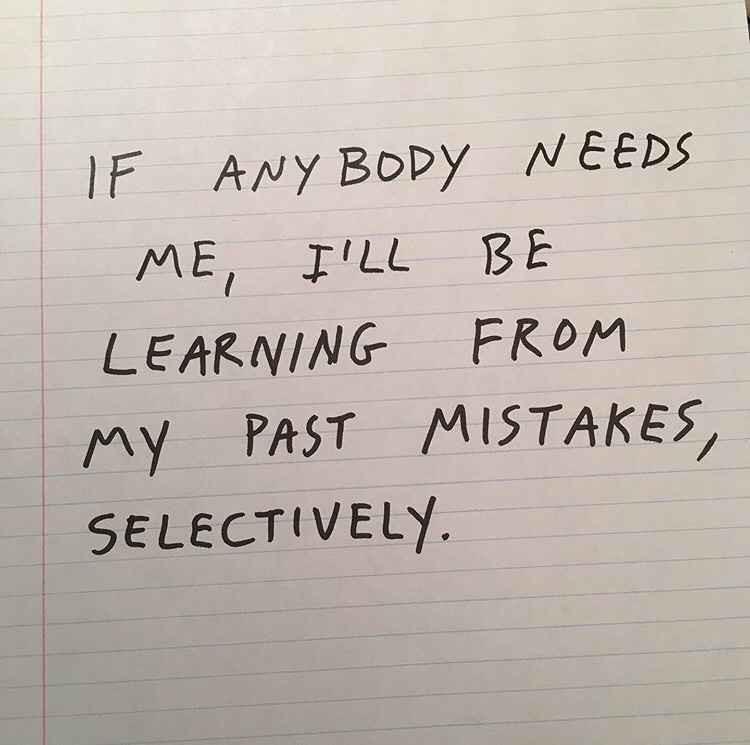 IF ANYBODY NEEDS
ME, I'LL BE
LEARNING FROM
MY PAST MISTAKES,
SELECTIVELY.